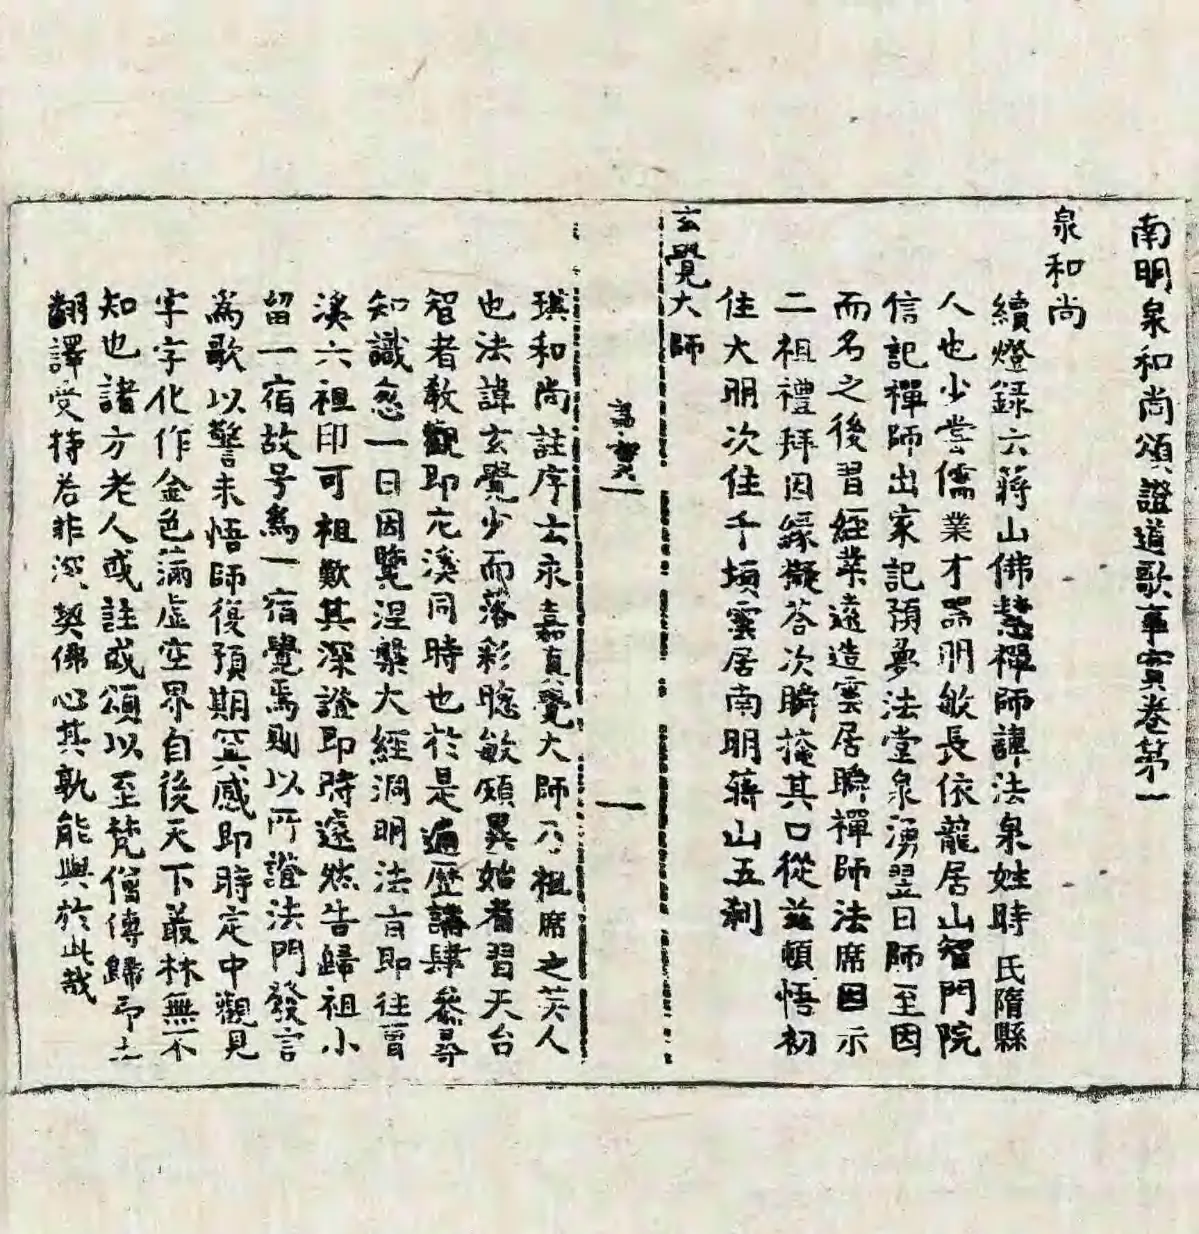 南明泉和尚頌證道歌事實卷第一
泉和尚
續燈錄六蔣山佛慧禪師諱法泉姓時氏隋縣
人也少甞儒業才器明敏長依龍居山智門院
信記禪師出家記預夢法堂泉湧翌日師至因
而名之後習經業遠造雲居曉禪師法席因示
二祖禮拜因緣擬答次曉掩其口從玆頓悟初
住大明次住千頃雲居南明蔣山五刹
玄覺大師
一
琪和尚註序云永嘉真覺大師乃祖席之英人
也法諱玄覺少而落彩聦敏頗異始者習天台
智者教觀即左溪同時也於是遍歷講肆叅尋
知識忽一日因覽涅槃大經洞明法言即往曹
溪六祖印可祖歎其深證即時遽然告歸祖小
留一宿故号爲一宿覺焉則以所證法門發言
爲歌以警未悟師復預期冥感即時定中觀見
字字化作金色滿虛空界自後天下叢林無不
知也諸方老人或註或頌以至梵僧傳歸印土
翻譯受持若非深契佛心其孰能與於此哉